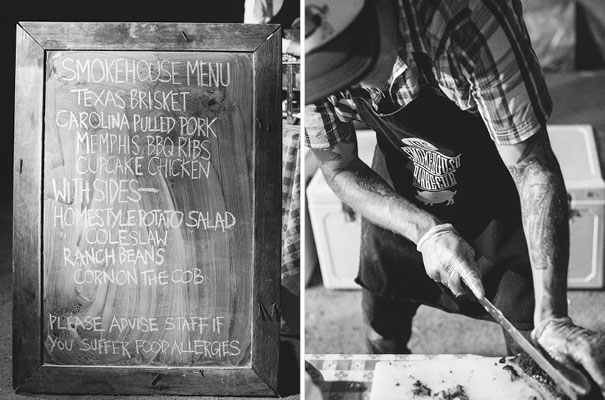 SMOKEHOUSE MENU
TEXAS BRISKET
CAROLINA PULLED PORK
MEMPHIS BBQ RIBS
CUPCAKE CHICKEN
WITH SIDES—
HOMESTYLE POTATO SALAD
COLESLAW
RANCH BEANS
CORN ON THE COB
PLEASE ADVISE STAFF IF
YOU SUFFER FOOD ALLERGIES
SMOKEHOUSE
BARBECUE